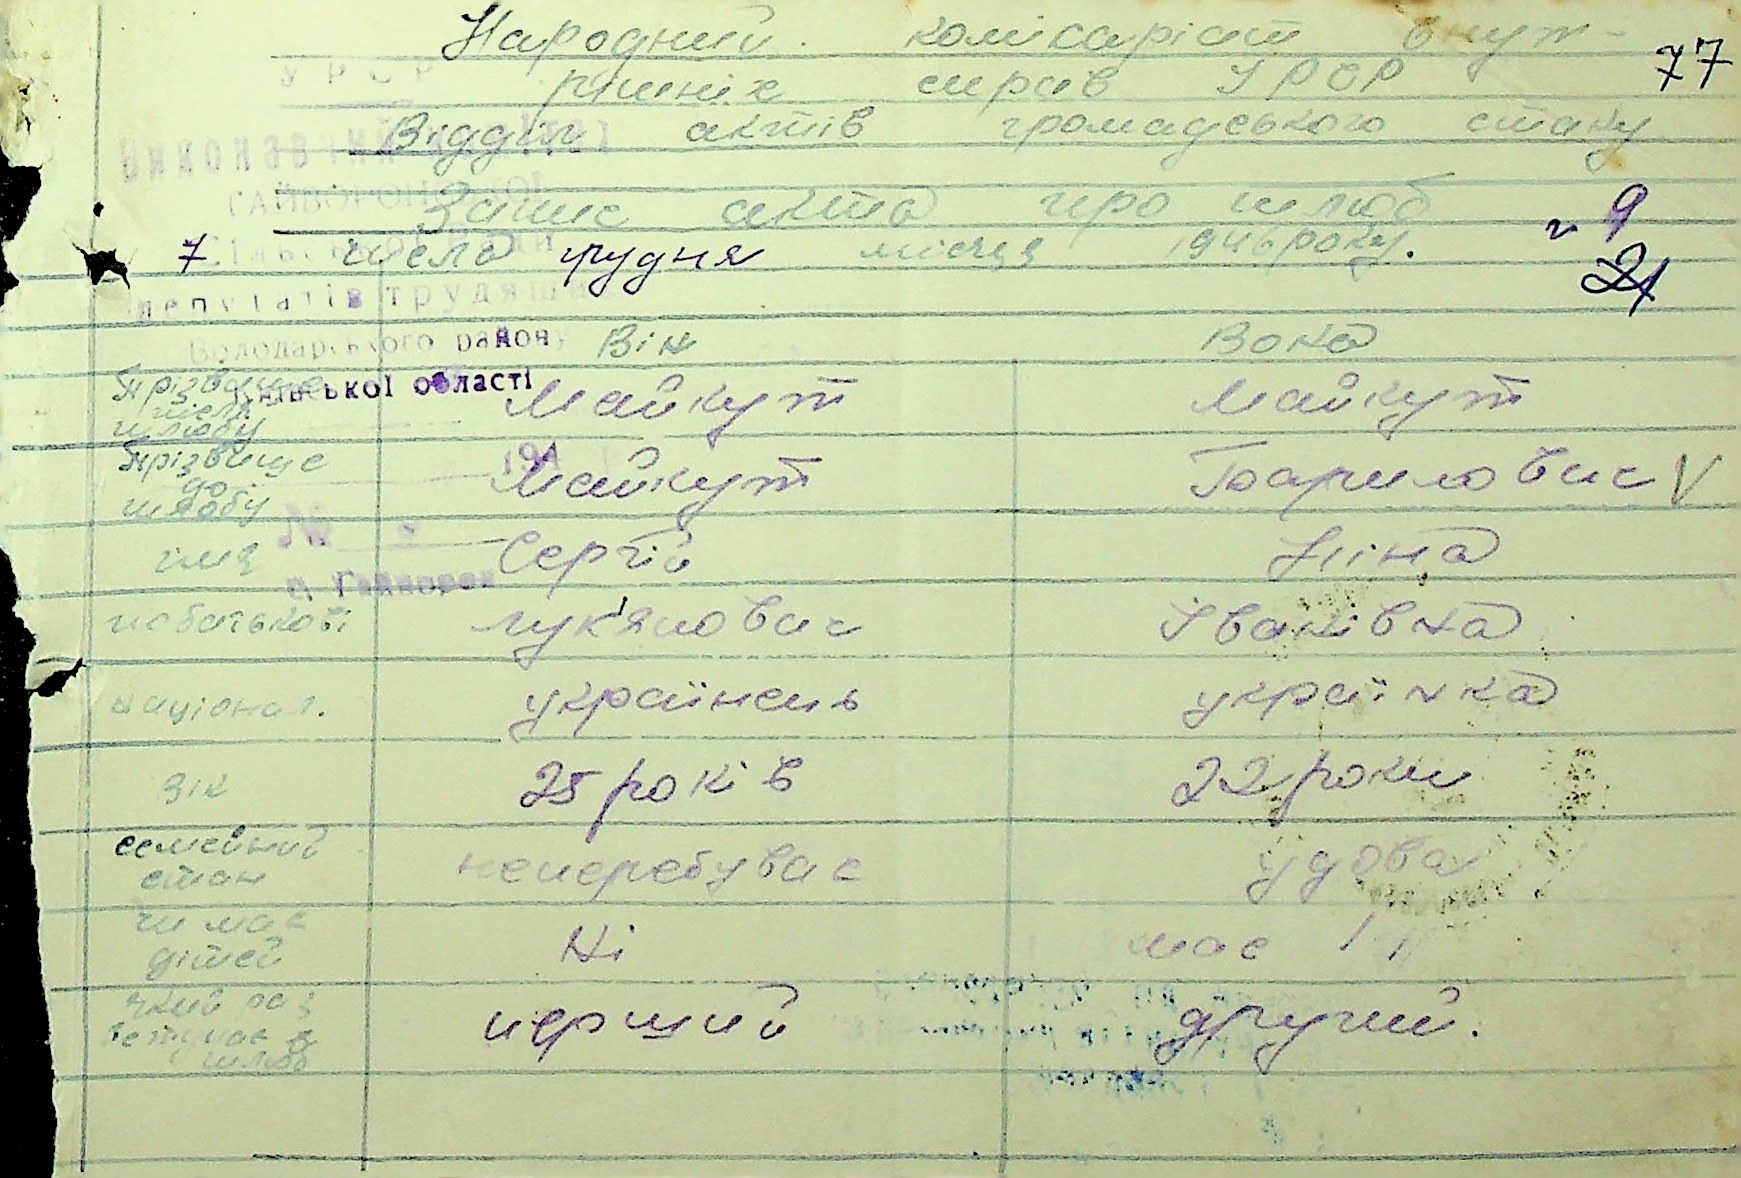 Народний комісаріат внут-
77
рішніх справ УРСР
Відділ актів громадського стану
Запис акта про шлюб
9
7 числа грудня місяця 1946 року.
21
УРСР
Виконавчий комітет
Гайворонської
сільської ради
депутатів трудящих
Володарського району
Київської області
194
№
с. Гайворон
Він Вона
прізвище після шлюбу Майкут Майкут
прізвище до шлюбу Майкут Гаврилович V
імя Сергій Ніна
побатькові Лук'янович Іванівна
націонал. українець українка
вік 25 років 22 роки
семейний стан неперебував удова
чи має дітей Ні має 1
який раз вступає в шлюб перший другий.